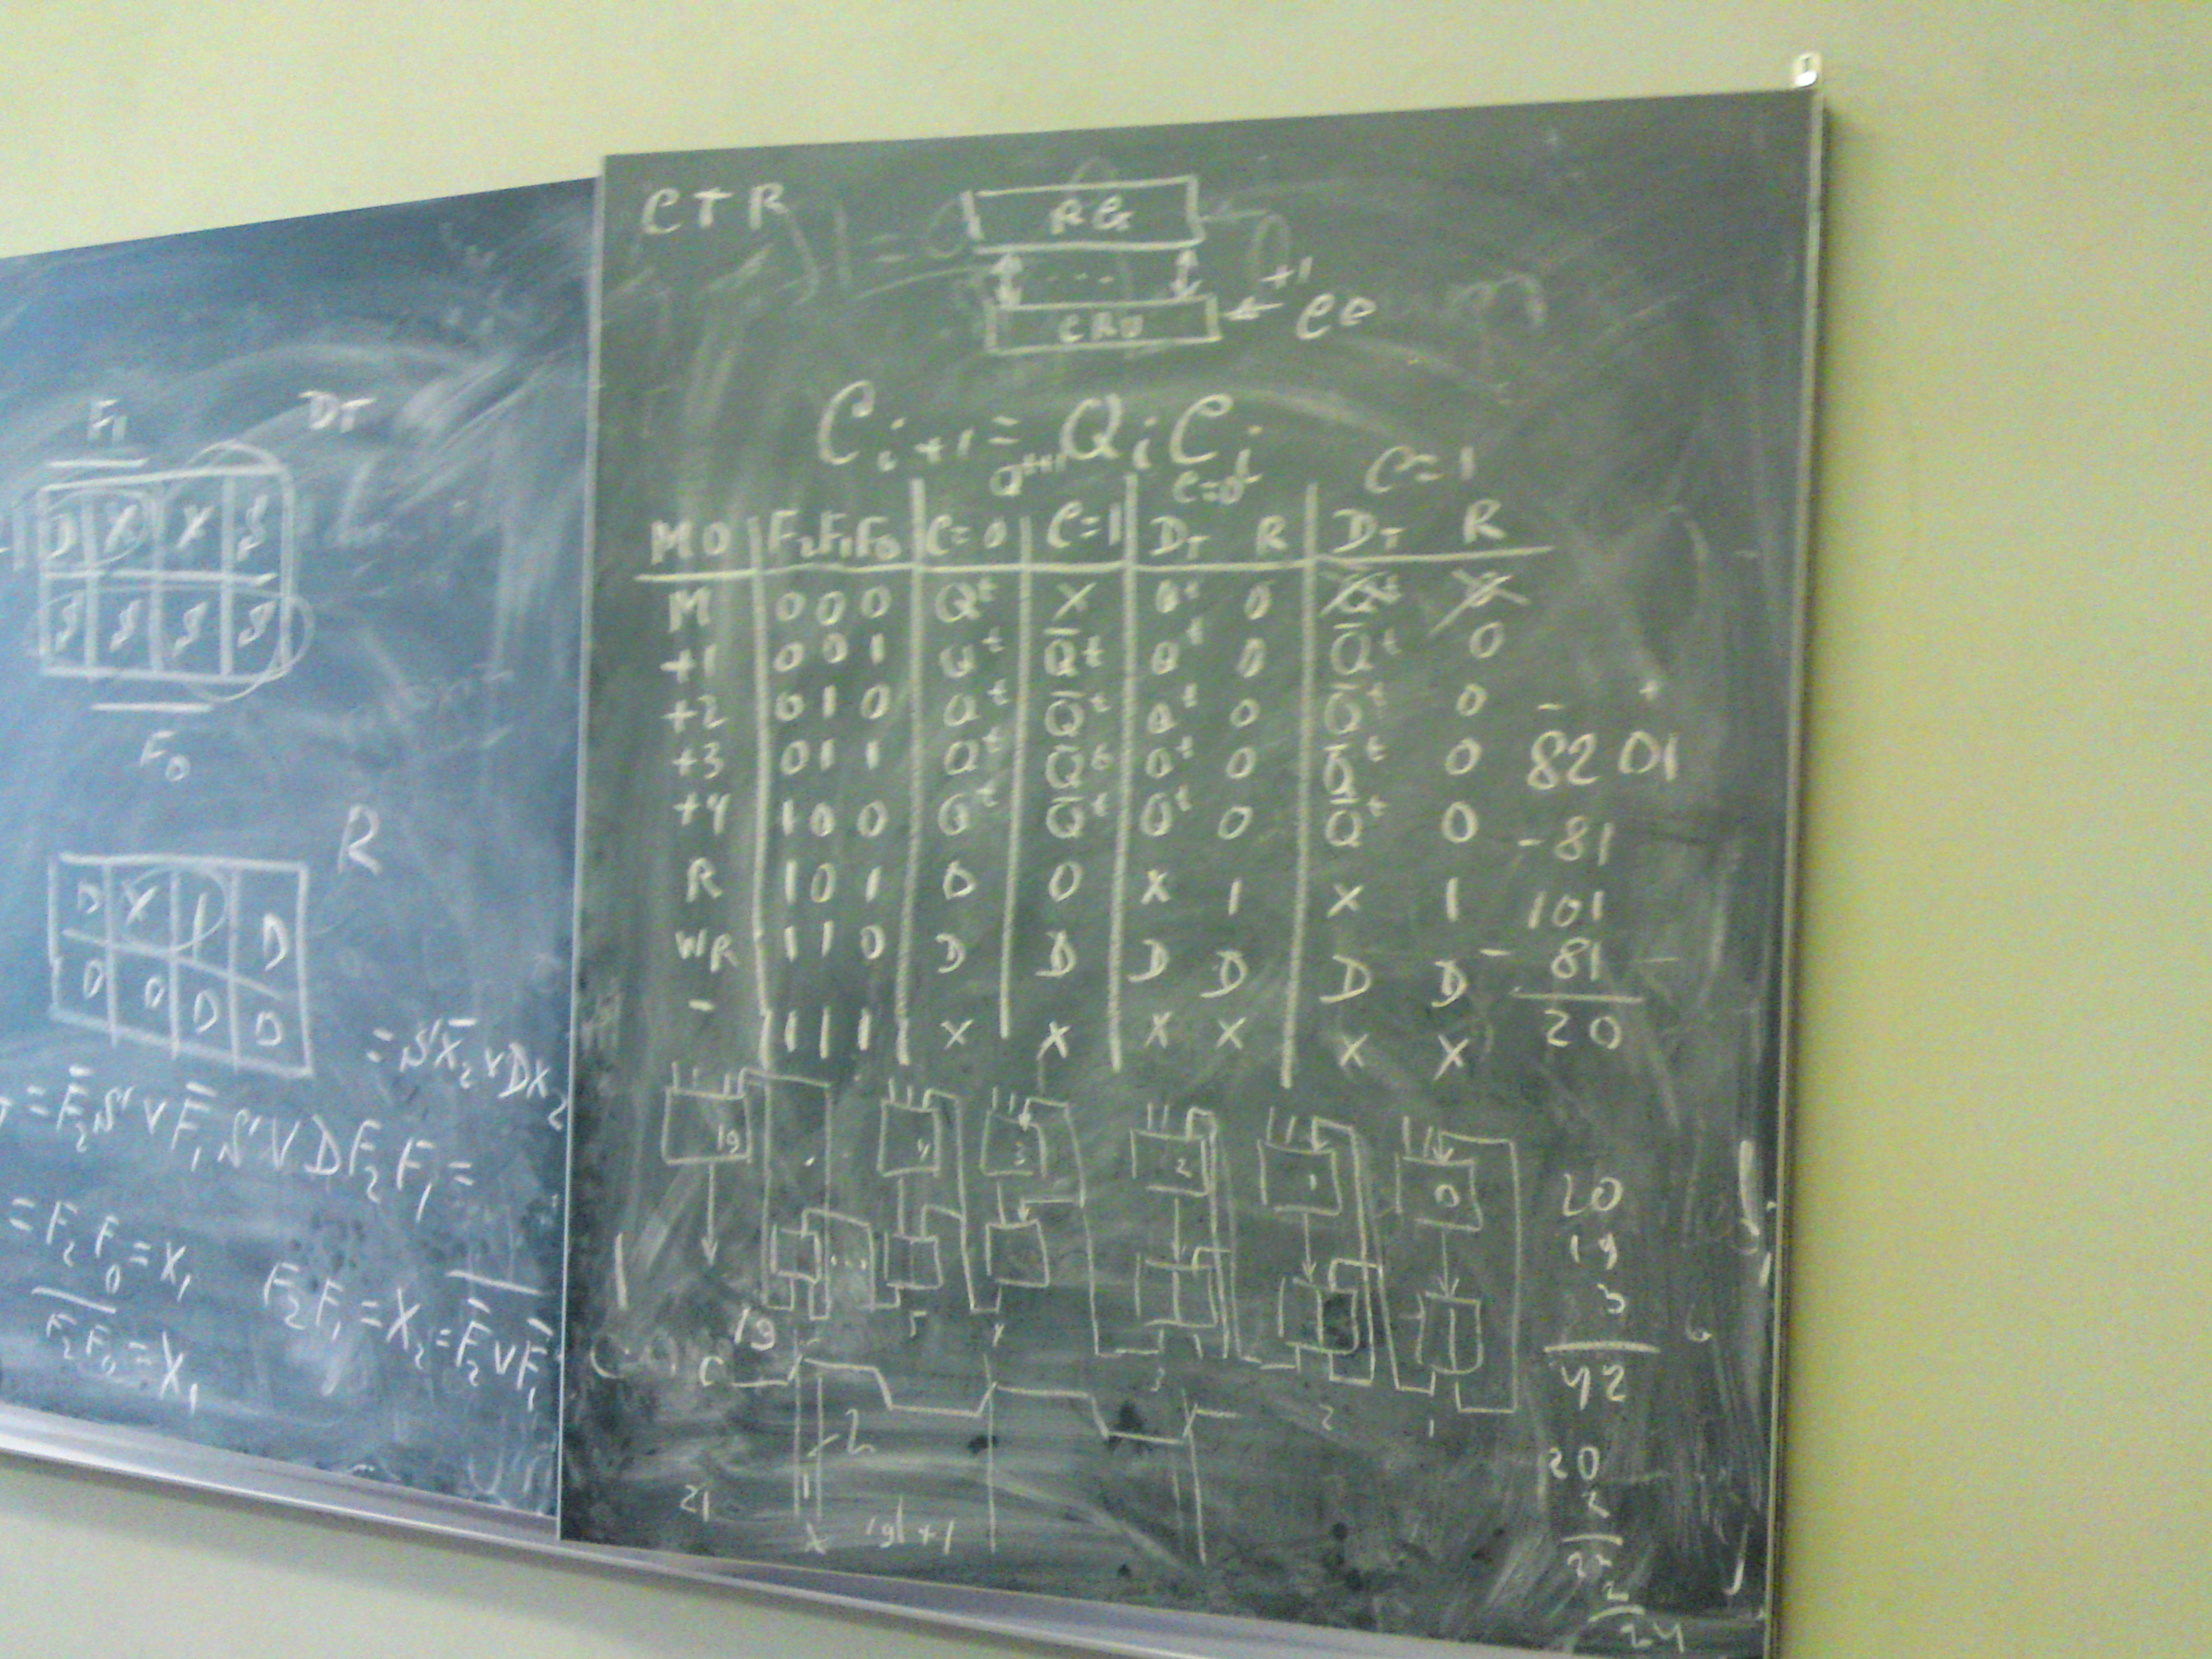 F₁ DT
D X X S
S S S S
F₀
R
D X 1 D
D D D D
= S X̄₂ v D X₂
= F̄₂ S v F̄₁ S v D F₂ F₁ =
= F₂ F₀ = X₁
F₂ F₁ = X₂ = F̄₂ v F̄₁
F₂ F₀ = X₁
CTR
RG
...
CRU
+1
Cᵢ₊₁ = QᵢCᵢ
Qᵗ⁺¹ C=0 C=1
MO F₂F₁F₀ C=0 C=1 DT R DT R
M 0 0 0 Qᵗ X Qᵗ 0
+1 0 0 1 Qᵗ Q̄ᵗ Qᵗ 0 Q̄ᵗ 0
+2 0 1 0 Qᵗ Q̄ᵗ Qᵗ 0 Q̄ᵗ 0
+3 0 1 1 Qᵗ Q̄ᵗ Qᵗ 0 Q̄ᵗ 0
+4 1 0 0 Qᵗ Q̄ᵗ Qᵗ 0 Q̄ᵗ 0
R 1 0 1 0 0 X 1 X 1
WR 1 1 0 D D D D D D
- 1 1 1 X X X X X X
- +
82 01
-81
101
- 81
20
19 4 3 2 1 0
...
19 5 4 3 2 1
C
21
19+1
20
19
3
42
20
2
22
2
24